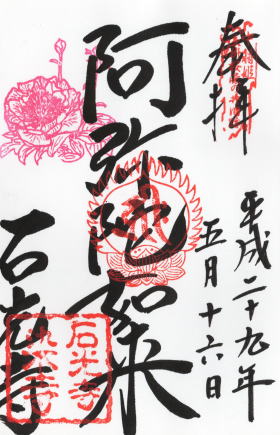 奉拝
平成二十九年
五月十六日
阿弥陀如来
石光寺
石光寺